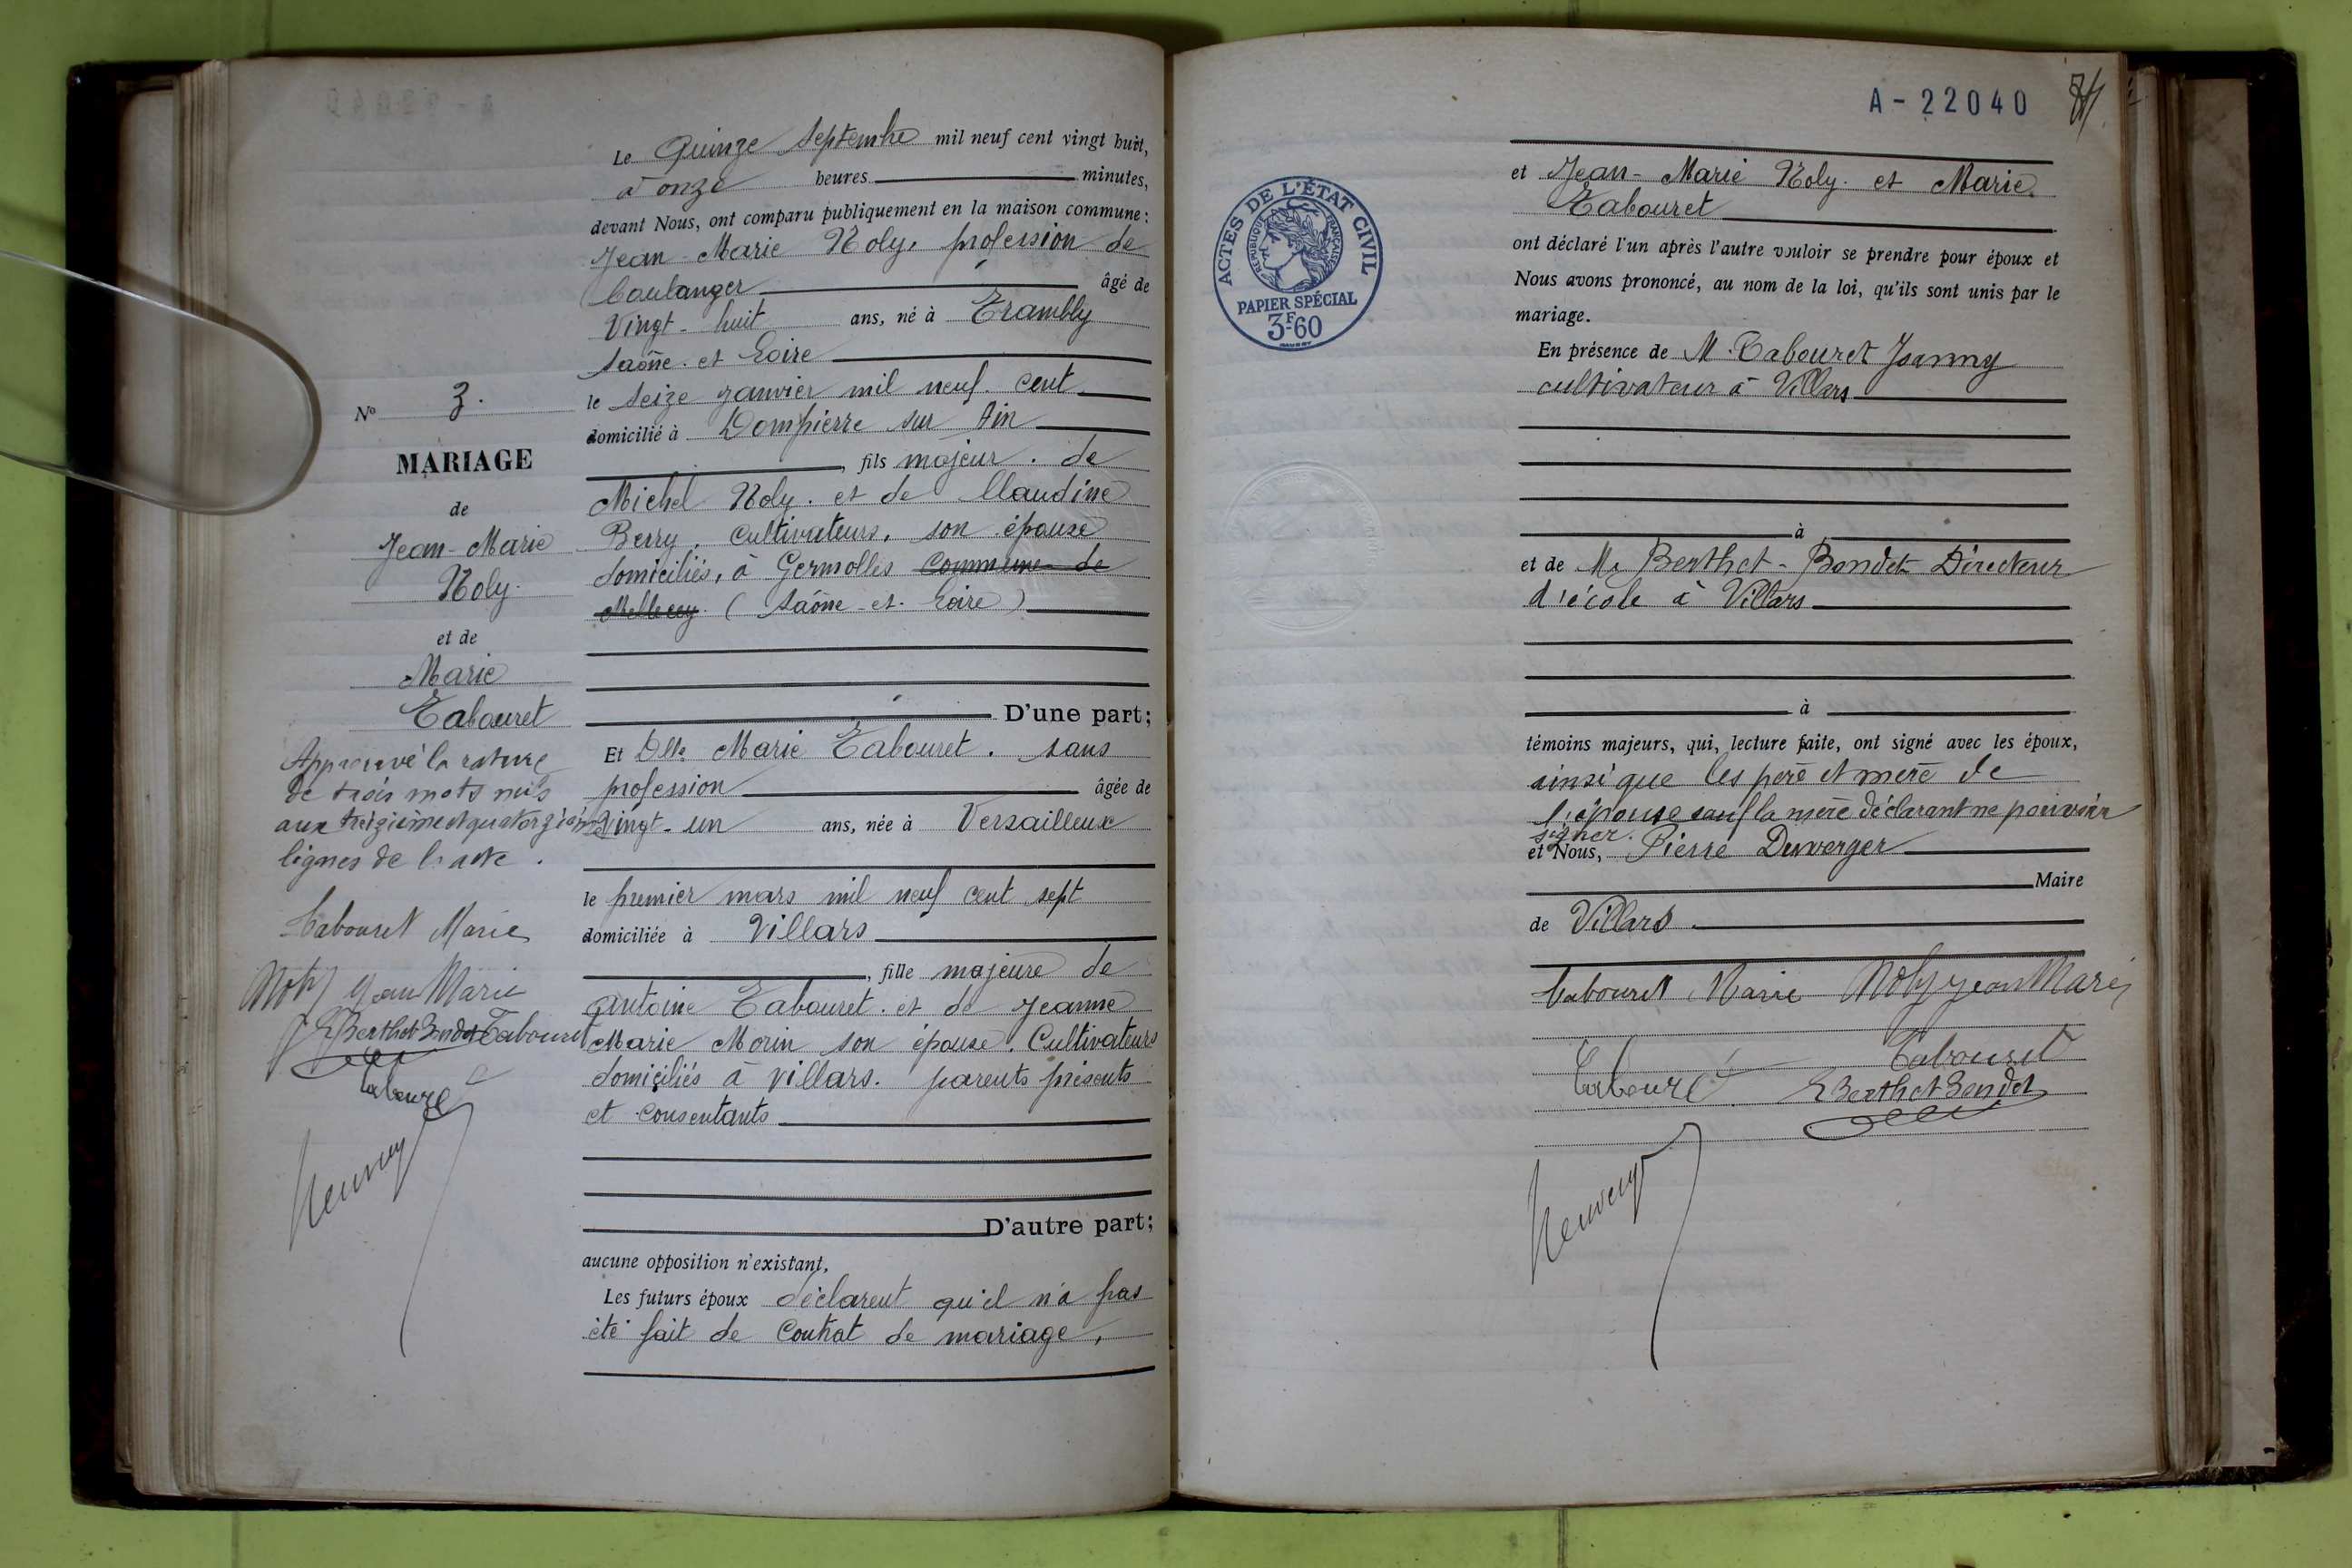 Le Quinze Septembre mil neuf cent vingt huit,
à onze heures minutes,
devant Nous, ont comparu publiquement en la maison commune :
Jean-Marie Noly, profession de
boulanger âgé de
Vingt-huit ans, né à Trambly
Saône-et Loire
le seize janvier mil neuf cent
domicilié à Dompierre sur Ain
, fils majeur. de
Michel Noly. et de Claudine
Berry, Cultivateurs, son épouse
domiciliés, à Germolles Commune de
Mellecey. (Saône-et-Loire)
D'une part;
Et Dlle Marie Tabouret. sans
profession âgée de
Vingt-un ans, née à Versailleux
le premier mars mil neuf cent sept
domiciliée à Villars
, fille majeure de
Antoine Tabouret. et de Jeanne
Marie Morin son épouse. Cultivateurs
domiciliés à Villars. parents présents
et consentants
D'autre part;
aucune opposition n'existant,
Les futurs époux déclarent qu'il n'a pas
été fait de Contrat de mariage,
No 3.
MARIAGE
de
Jean-Marie
Noly.
et de
Marie
Tabouret
Approuvé la rature
de trois mots nuls
aux treizième et quatorzième
lignes de l'acte.
Tabouret Marie
Noly Jean Marie
Berthet Bondet Tabouret
Tabouret
A-22040
ACTES DE L'ÉTAT CIVIL
RÉPUBLIQUE FRANÇAISE
PAPIER SPÉCIAL
3F60
et Jean-Marie Noly. et Marie
Tabouret
ont déclaré l'un après l'autre vouloir se prendre pour époux et
Nous avons prononcé, au nom de la loi, qu'ils sont unis par le
mariage.
En présence de M. Tabouret Joanny
cultivateur à Villars
à
et de Mr Berthet-Bondet Directeur
d'école à Villars
à
témoins majeurs, qui, lecture faite, ont signé avec les époux,
ainsi que les père et mère de
l'épouse sauf la mère déclarant ne pouvoir
signer.
et Nous, Pierre Duverger
Maire
de Villars.
Tabouret Marie Noly Jean Marie
Tabouret
Tabouret E Berthet Bondet